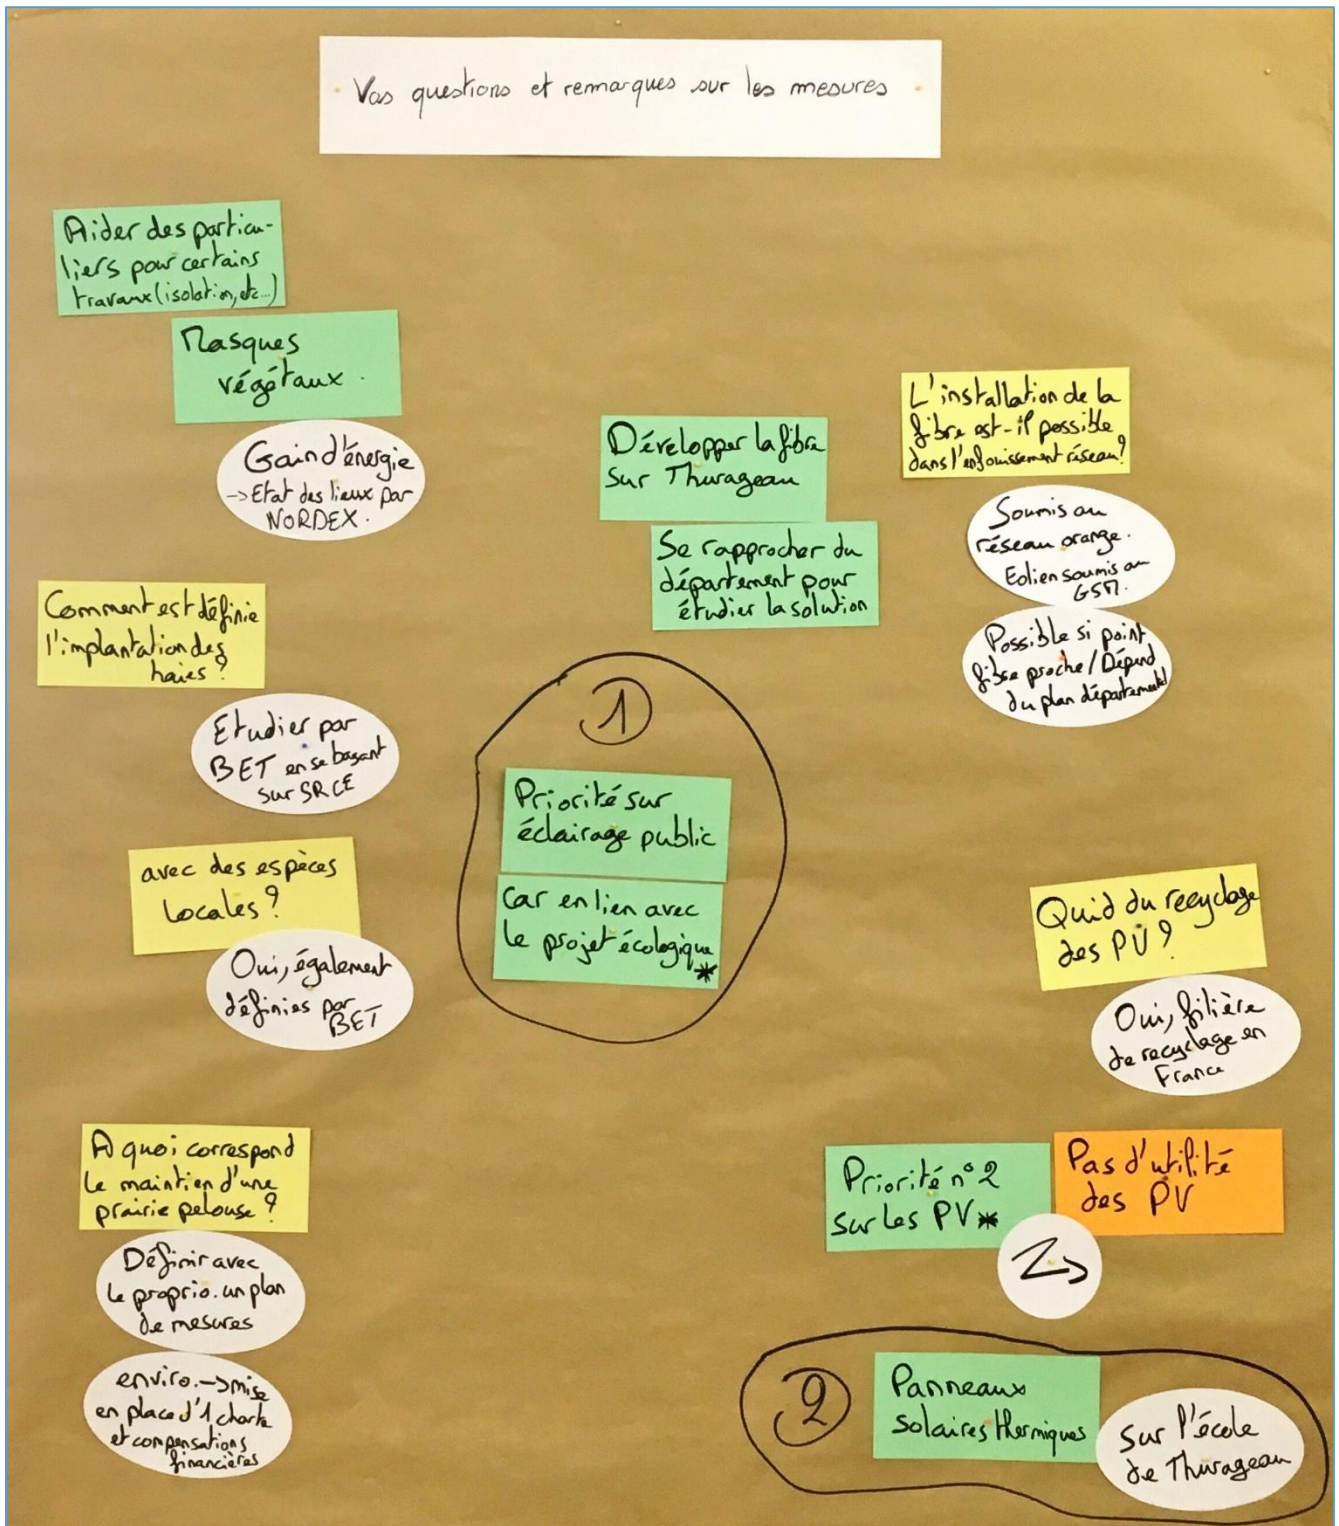 Vos questions et remarques sur les mesures
Aider des particu-
liers pour certains
travaux (isolation, etc...)
Masques
végétaux.
Gain d'énergie
-> Etat des lieux par
NORDEX.
Comment est définie
l'implantation des
haies?
Etudier par
BET en se basant
sur SRCE
avec des espèces
locales?
Oui, également
définies par
BET
A quoi correspond
le maintien d'une
prairie pelouse?
Définir avec
le proprio. un plan
de mesures
enviro. -> mise
en place d'1 charte
et compensations
financières
Développer la fibre
sur Thurageau
Se rapprocher du
département pour
étudier la solution
1
Priorité sur
éclairage public
Car en lien avec
le projet écologique
*
L'installation de la
fibre est-il possible
dans l'enfouissement réseau?
Soumis au
réseau orange.
Eolien soumis au
GSM.
Possible si point
fibre proche / Dépend
du plan départemental
Quid du recyclage
des PV?
Oui, filière
de recyclage en
France
Priorité n°2
sur les PV *
Pas d'utilité
des PV
2
Panneaux
solaires thermiques
Sur l'école
de Thurageau